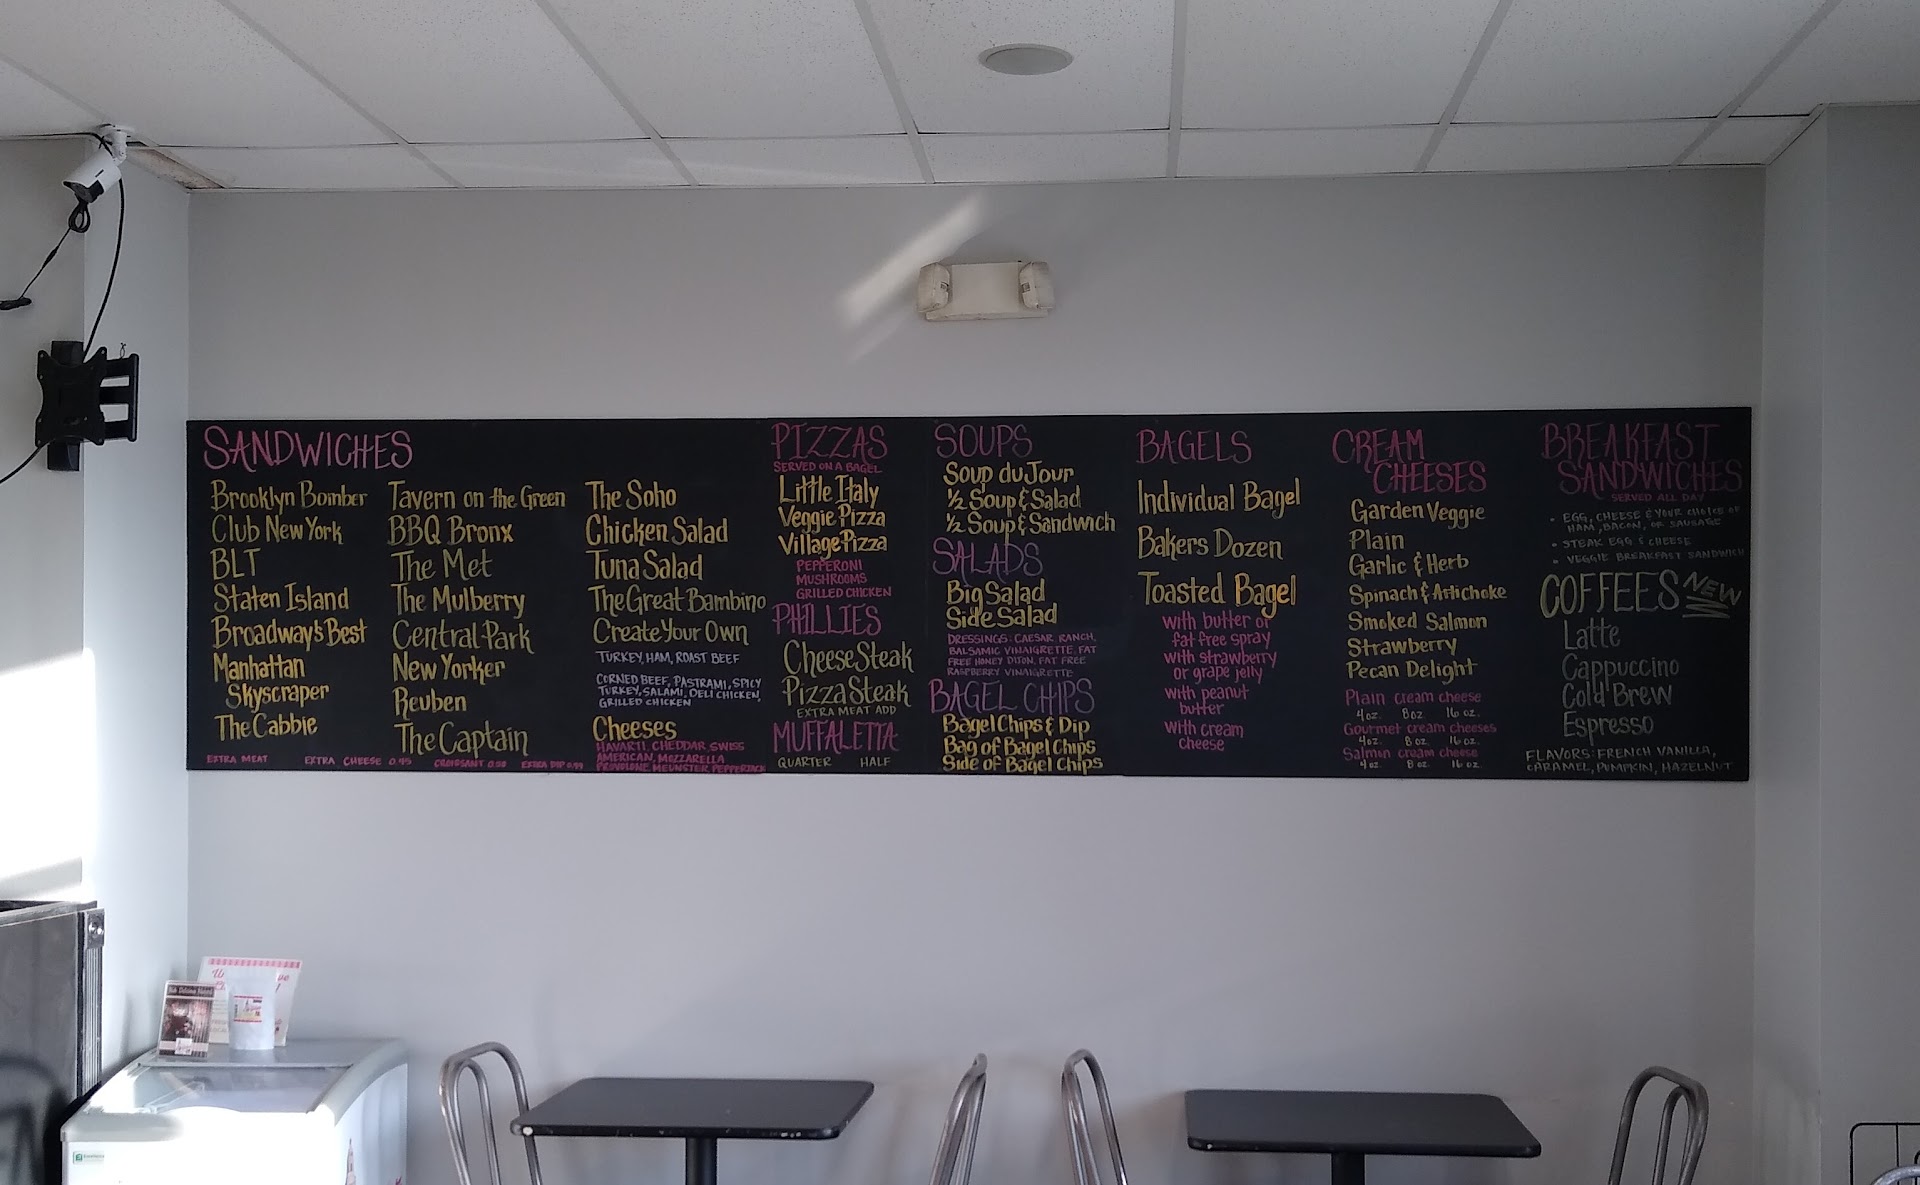 SANDWICHES
Brooklyn Bomber
Club New York
BLT
Staten Island
Broadway's Best
Manhattan
Skyscraper
The Cabbie
Tavern on the Green
BBQ Bronx
The Met
The Mulberry
Central Park
New Yorker
Reuben
The Captain
The Soho
Chicken Salad
Tuna Salad
The Great Bambino
Create Your Own
TURKEY, HAM, ROAST BEEF
CORNED BEEF, PASTRAMI, SPICY
TURKEY, SALAMI, DELI CHICKEN,
GRILLED CHICKEN
Cheeses
HAVARTI, CHEDDAR, SWISS
AMERICAN, MOZZARELLA
PROVOLONE, MEUNSTER, PEPPERJACK
EXTRA MEAT EXTRA CHEESE 0.45 CROISSANT 0.50 EXTRA DIP 0.59
PIZZAS
SERVED ON A BAGEL
Little Italy
Veggie Pizza
Village Pizza
PEPPERONI
MUSHROOMS
GRILLED CHICKEN
PHILLIES
Cheese Steak
Pizza Steak
EXTRA MEAT ADD
MUFFALETTA
QUARTER HALF
SOUPS
Soup du Jour
½ Soup & Salad
½ Soup & Sandwich
SALADS
Big Salad
Side Salad
DRESSINGS: CAESAR RANCH,
BALSAMIC VINAIGRETTE, FAT
FREE HONEY DIJON, FAT FREE
RASPBERRY VINAIGRETTE
BAGEL CHIPS
Bagel Chips & Dip
Bag of Bagel Chips
Side of Bagel Chips
BAGELS
Individual Bagel
Bakers Dozen
Toasted Bagel
with butter or
fat free spray
with strawberry
or grape jelly
with peanut
butter
with cream
cheese
CREAM
CHEESES
Garden Veggie
Plain
Garlic & Herb
Spinach & Artichoke
Smoked Salmon
Strawberry
Pecan Delight
Plain cream cheese
4 oz. 8 oz. 16 oz.
Gourmet cream cheeses
4 oz. 8 oz. 16 oz.
Salmon cream cheese
4 oz. 8 oz. 16 oz.
BREAKFAST
SANDWICHES
SERVED ALL DAY
• EGG, CHEESE & YOUR CHOICE OF
HAM, BACON, OR SAUSAGE
• STEAK EGG & CHEESE
• VEGGIE BREAKFAST SANDWICH
COFFEES NEW
Latte
Cappuccino
Cold Brew
Espresso
FLAVORS: FRENCH VANILLA,
CARAMEL, PUMPKIN, HAZELNUT